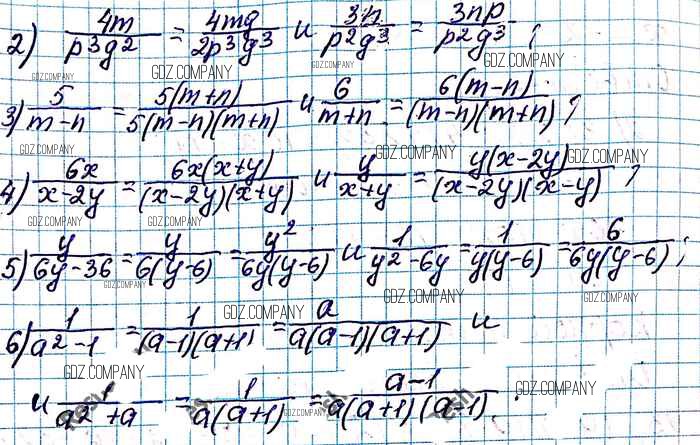 2) 4m/(p³g²) = 4mg/(2p³g³) и 3n/(p²g³) = 3np/(p²g³);
GDZ.COMPANY GDZ.COMPANY GDZ.COMPANY GDZ.COMPANY
3) 5/(m-n) = 5(m+n)/(5(m-n)(m+n)) и 6/(m+n) = 6(m-n)/((m-n)(m+n));
GDZ.COMPANY GDZ.COMPANY GDZ.COMPANY
4) 6x/(x-2y) = 6x(x+y)/((x-2y)(x+y)) и y/(x+y) = y(x-2y)/((x-2y)(x-y));
GDZ.COMPANY GDZ.COMPANY GDZ.COMPANY
5) y/(6y-36) = y/(6(y-6)) = y²/(6y(y-6)) и 1/(y²-6y) = 1/(y(y-6)) = 6/(6y(y-6));
GDZ.COMPANY GDZ.COMPANY GDZ.COMPANY GDZ.COMPANY
6) 1/(a²-1) = 1/((a-1)(a+1)) = a/(a(a-1)(a+1)) и
GDZ.COMPANY GDZ.COMPANY
и 1/(a²+a) = 1/(a(a+1)) = (a-1)/(a(a+1)(a-1)).
GDZ.COMPANY GDZ.COMPANY